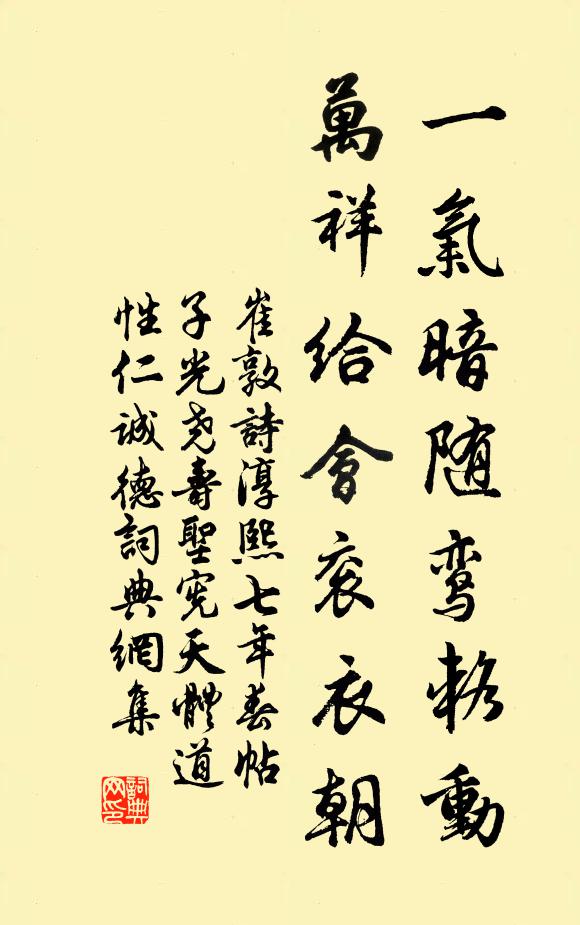 一氣暗随鸾輅動
萬祥给會衮衣朝
崔敦詩淳熙七年春帖
子光尧壽聖宪天體道
性仁誠德詞典網集
詞典网印